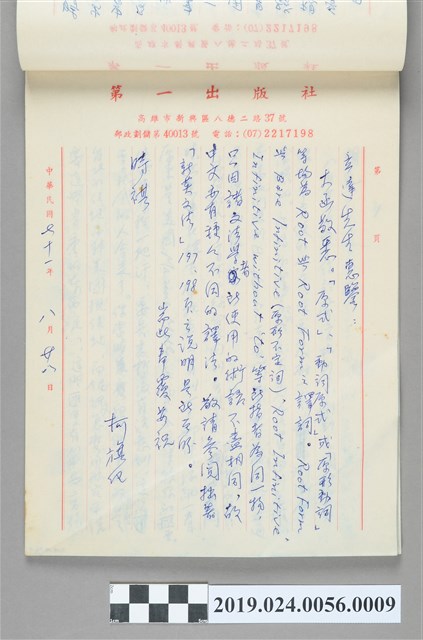 第一出版社
高雄市新興區八德二路37號
郵政劃儲第40013號 電話:(07)2217198
第 頁
先生惠鑒:
大函敬悉。「原式」、「動詞原式」或「原形動詞」
等均為Root與Root Form之譯詞。Root Form
與Bare Infinitive(原形不定詞)、Root Infinitive、
Infinitive without 'to' 等所指者為同一物,
只因諸文法學者所使用的術語不盡相同,故
中文亦有種種不同的譯法。敬請參閱拙著
「新英文法」197、198頁之說明是所至盼。
崇此奉覆並祝
時祺
柯旗化
中華民國七十一年八月廿八日
2019.024.0056.0009